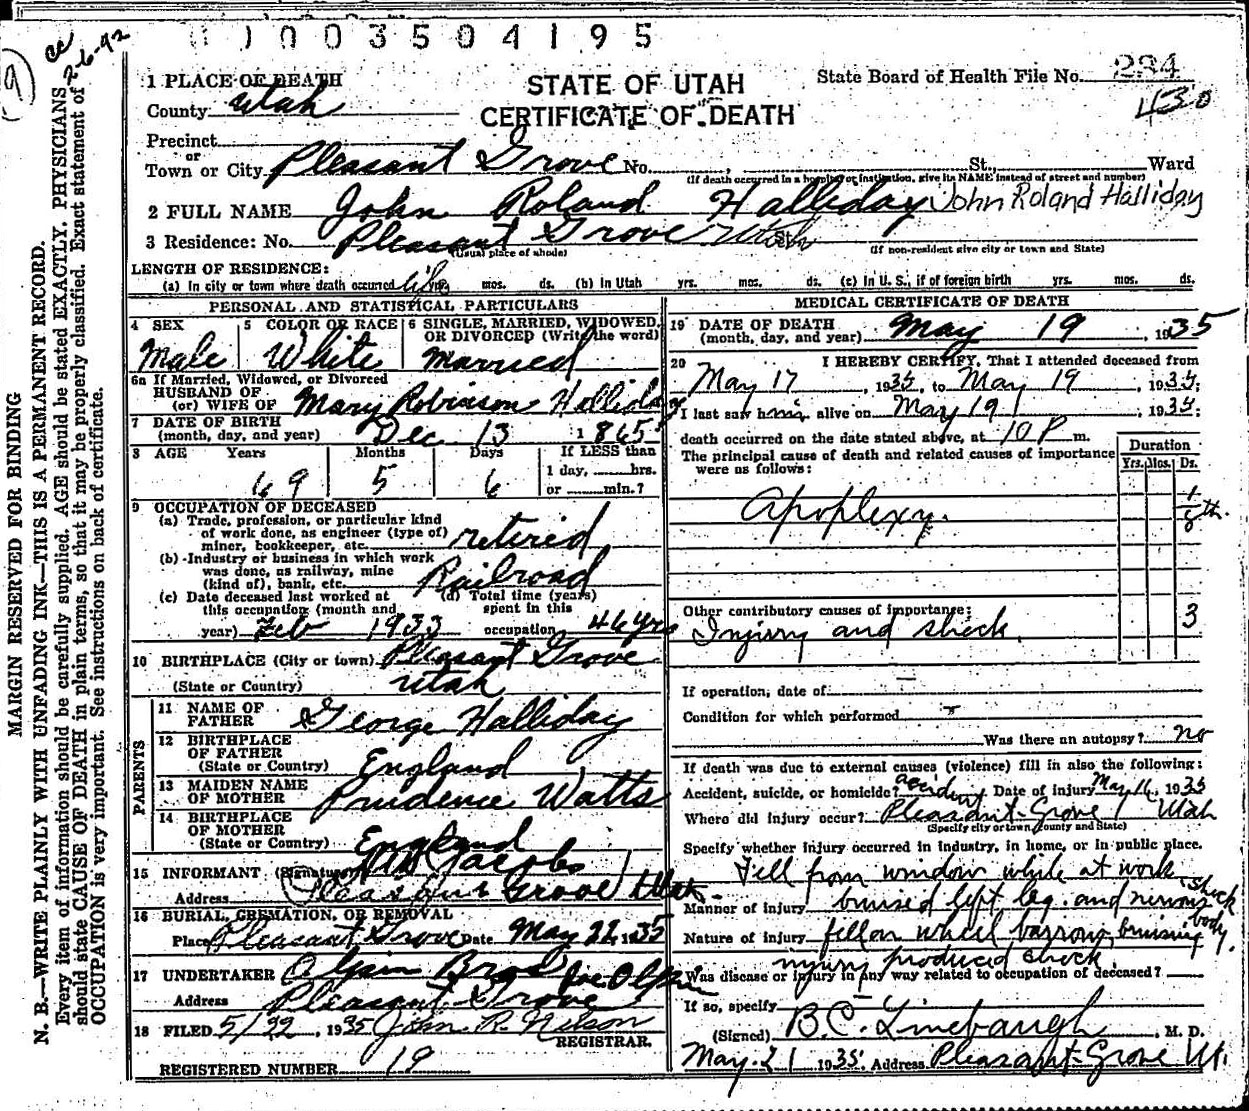 0 1 0 0 3 5 0 4 1 9 5
cc 2-6-92
9
1 PLACE OF DEATH
STATE OF UTAH
CERTIFICATE OF DEATH
State Board of Health File No. 234
430
County Utah
Precinct
or
Town or City Pleasant Grove No. , St., Ward
(If death occurred in a hospital or institution, give its NAME instead of street and number)
2 FULL NAME John Roland Halliday John Roland Halliday
3 Residence: No. Pleasant Grove Utah
(Usual place of abode) (If non-resident give city or town and State)
LENGTH OF RESIDENCE:
(a) In city or town where death occurred life yrs. mos. ds. (b) In Utah yrs. mos. ds. (c) In U. S., if of foreign birth yrs. mos. ds.
PERSONAL AND STATISTICAL PARTICULARS
4 SEX Male
5 COLOR OR RACE White
6 SINGLE, MARRIED, WIDOWED, OR DIVORCED (Write the word) Married
6a If Married, Widowed, or Divorced
HUSBAND OF
(or) WIFE OF Mary Robinson Halliday
7 DATE OF BIRTH
(month, day, and year) Dec 13 1865
8 AGE Years Months Days If LESS than
1 day, hrs.
69 5 6 or min.?
9 OCCUPATION OF DECEASED
(a) Trade, profession, or particular kind
of work done, as engineer (type of)
miner, bookkeeper, etc. retired
(b) Industry or business in which work
was done, as railway, mine
(kind of), bank, etc. Railroad
(c) Date deceased last worked at
this occupation (month and
year) Feb 1933
(d) Total time (years)
spent in this
occupation 46 yrs
10 BIRTHPLACE (City or town) Pleasant Grove
(State or Country) Utah
PARENTS
11 NAME OF
FATHER George Halliday
12 BIRTHPLACE
OF FATHER
(State or Country) England
13 MAIDEN NAME
OF MOTHER Prudence Watts
14 BIRTHPLACE
OF MOTHER
(State or Country) England
15 INFORMANT (Signature) Jacobs
Address Pleasant Grove Utah
16 BURIAL, CREMATION, OR REMOVAL
Place Pleasant Grove Date May 22, 1935
17 UNDERTAKER Olpin Bros Joe Olpin
Address Pleasant Grove
18 FILED 5/22, 1935 John R. Nelson
REGISTRAR.
REGISTERED NUMBER 19
MEDICAL CERTIFICATE OF DEATH
19 DATE OF DEATH
(month, day, and year) May 19 1935
20 I HEREBY CERTIFY, That I attended deceased from
May 17, 1935, to May 19, 1935;
I last saw him alive on May 19, 1935;
death occurred on the date stated above, at 10 P m.
The principal cause of death and related causes of importance
were as follows:
Duration
Yrs. Mos. Ds.
Apoplexy. 1/8 th.
Other contributory causes of importance:
Injury and shock. 3
If operation, date of
Condition for which performed
Was there an autopsy? no
If death was due to external causes (violence) fill in also the following:
Accident, suicide, or homicide? accident Date of injury May 16, 1935
Where did injury occur? Pleasant Grove Utah
(Specify city or town, county and State)
Specify whether injury occurred in industry, in home, or in public place.
Fell from window while at work
Manner of injury bruised left leg. and nervous shock
Nature of injury fell on wheel barrow, bruising body.
injury produced shock.
Was disease or injury in any way related to occupation of deceased?
If so, specify
(Signed) B. C. Linebaugh, M. D.
May 21 1935 Address Pleasant Grove Ut.
MARGIN RESERVED FOR BINDING
N. B.—WRITE PLAINLY WITH UNFADING INK—THIS IS A PERMANENT RECORD.
Every item of information should be carefully supplied. AGE should be stated EXACTLY. PHYSICIANS
should state CAUSE OF DEATH in plain terms, so that it may be properly classified. Exact statement of
OCCUPATION is very important. See instructions on back of certificate.